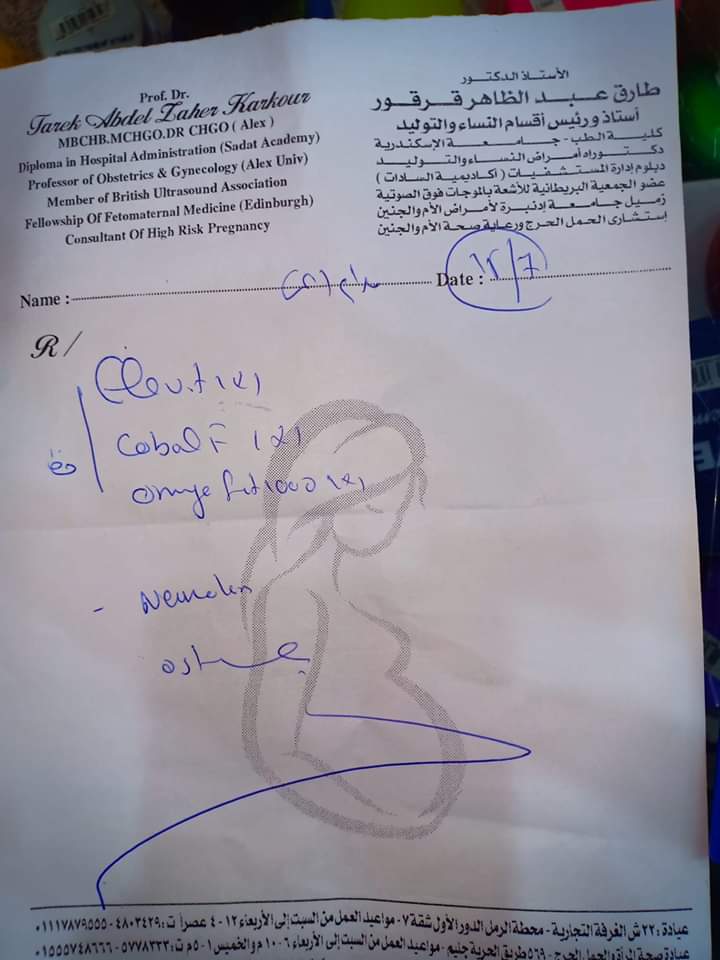 Prof. Dr.
Tarek Abdel Zaher Karkour
MBCHB.MCHGO.DR CHGO ( Alex )
Diploma in Hospital Administration (Sadat Academy)
Professor of Obstetrics & Gynecology (Alex Univ)
Member of British Ultrasound Association
Fellowship Of Fetomaternal Medicine (Edinburgh)
Consultant Of High Risk Pregnancy
الأستاذ الدكتور
طارق عبد الظاهر قرقور
أستاذ ورئيس أقسام النساء والتوليد
كلية الطب - جامعة الإسكندرية
دكتوراه أمراض النساء والتوليد
دبلوم إدارة المستشفيات ( أكاديمية السادات )
عضو الجمعية البريطانية للأشعة بالموجات فوق الصوتية
زميل جامعة إدنبرة لأمراض الأم والجنين
إستشارى الحمل الحرج ورعاية صحة الأم والجنين
Name : مدام Date : ١٢/٧
R/
Elevit 1x1
Cobal F 1x1
1000 1x1
عيادة : ٢٢ ش الغرفة التجارية - محطة الرمل الدور الأول شقة ٧ - مواعيد العمل من السبت إلى الأربعاء ١٢ - ٤ عصراً ت : ٤٨٠٣٤٢٩ - ٠١١١٧٨٧٩٥٥٥
عيادة صحة المرأة والحمل الحرج - ٥٦٩ طريق الحرية جليم - مواعيد العمل من السبت إلى الأربعاء ٦ - ١٠ م والخميس ١ - ٥ م ت : ٥٧٧٨٣٣٣ - ٠١٥٥٥٧٤٨٦٦٦